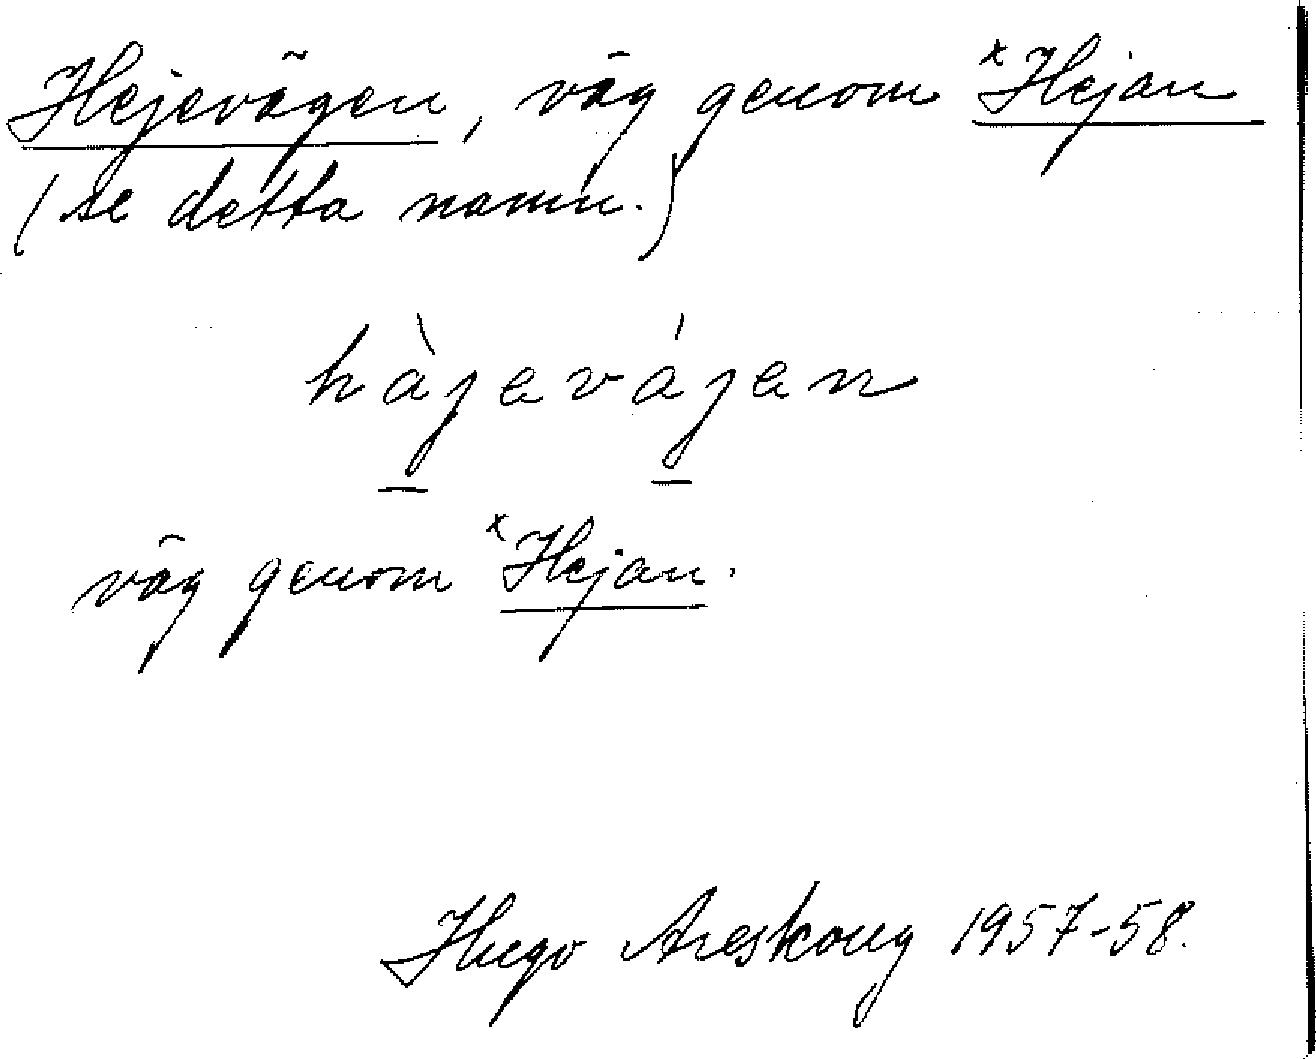 Hejevägen, väg genom *Hejan
(se detta namn.)
hàjevájen
väg genom *Hejan.
Hugo Areskoug 1957-58.